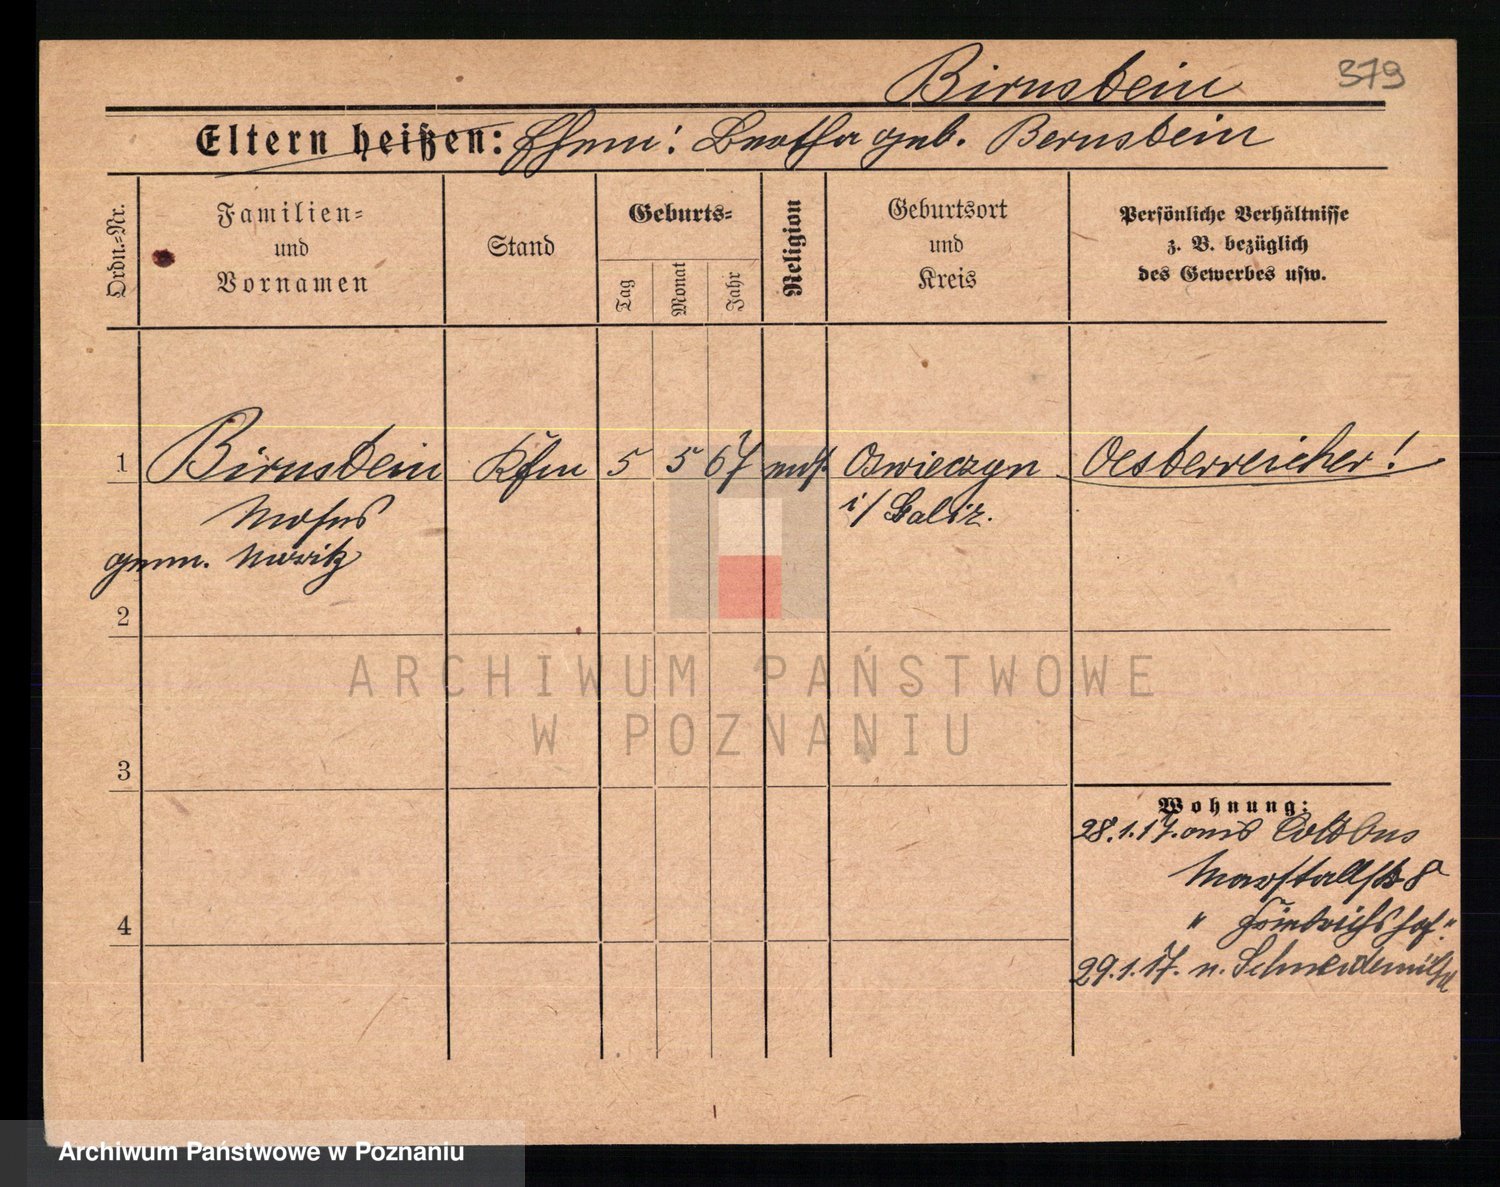 Birnstein 379
Eltern heißen: Ehem: Bertha geb. Bernstein
Ordn.-Nr.
Familien-
und
Vornamen
Stand
Geburts-
Tag
Monat
Jahr
Religion
Geburtsort
und
Kreis
Persönliche Verhältnisse
z. B. bezüglich
des Gewerbes usw.
1 Birnstein Kfm 5 5 67 mos. Oswieczyn Oesterreicher!
Moses i/ Galiz.
genn. Moritz
2
3
4
Wohnung:
28.1.17. aus Cottbus
Marstallstr 8
" Friedrichshof."
29.1.17. n. Schneidemühl
ARCHIWUM PAŃSTWOWE
W POZNANIU
Archiwum Państwowe w Poznaniu